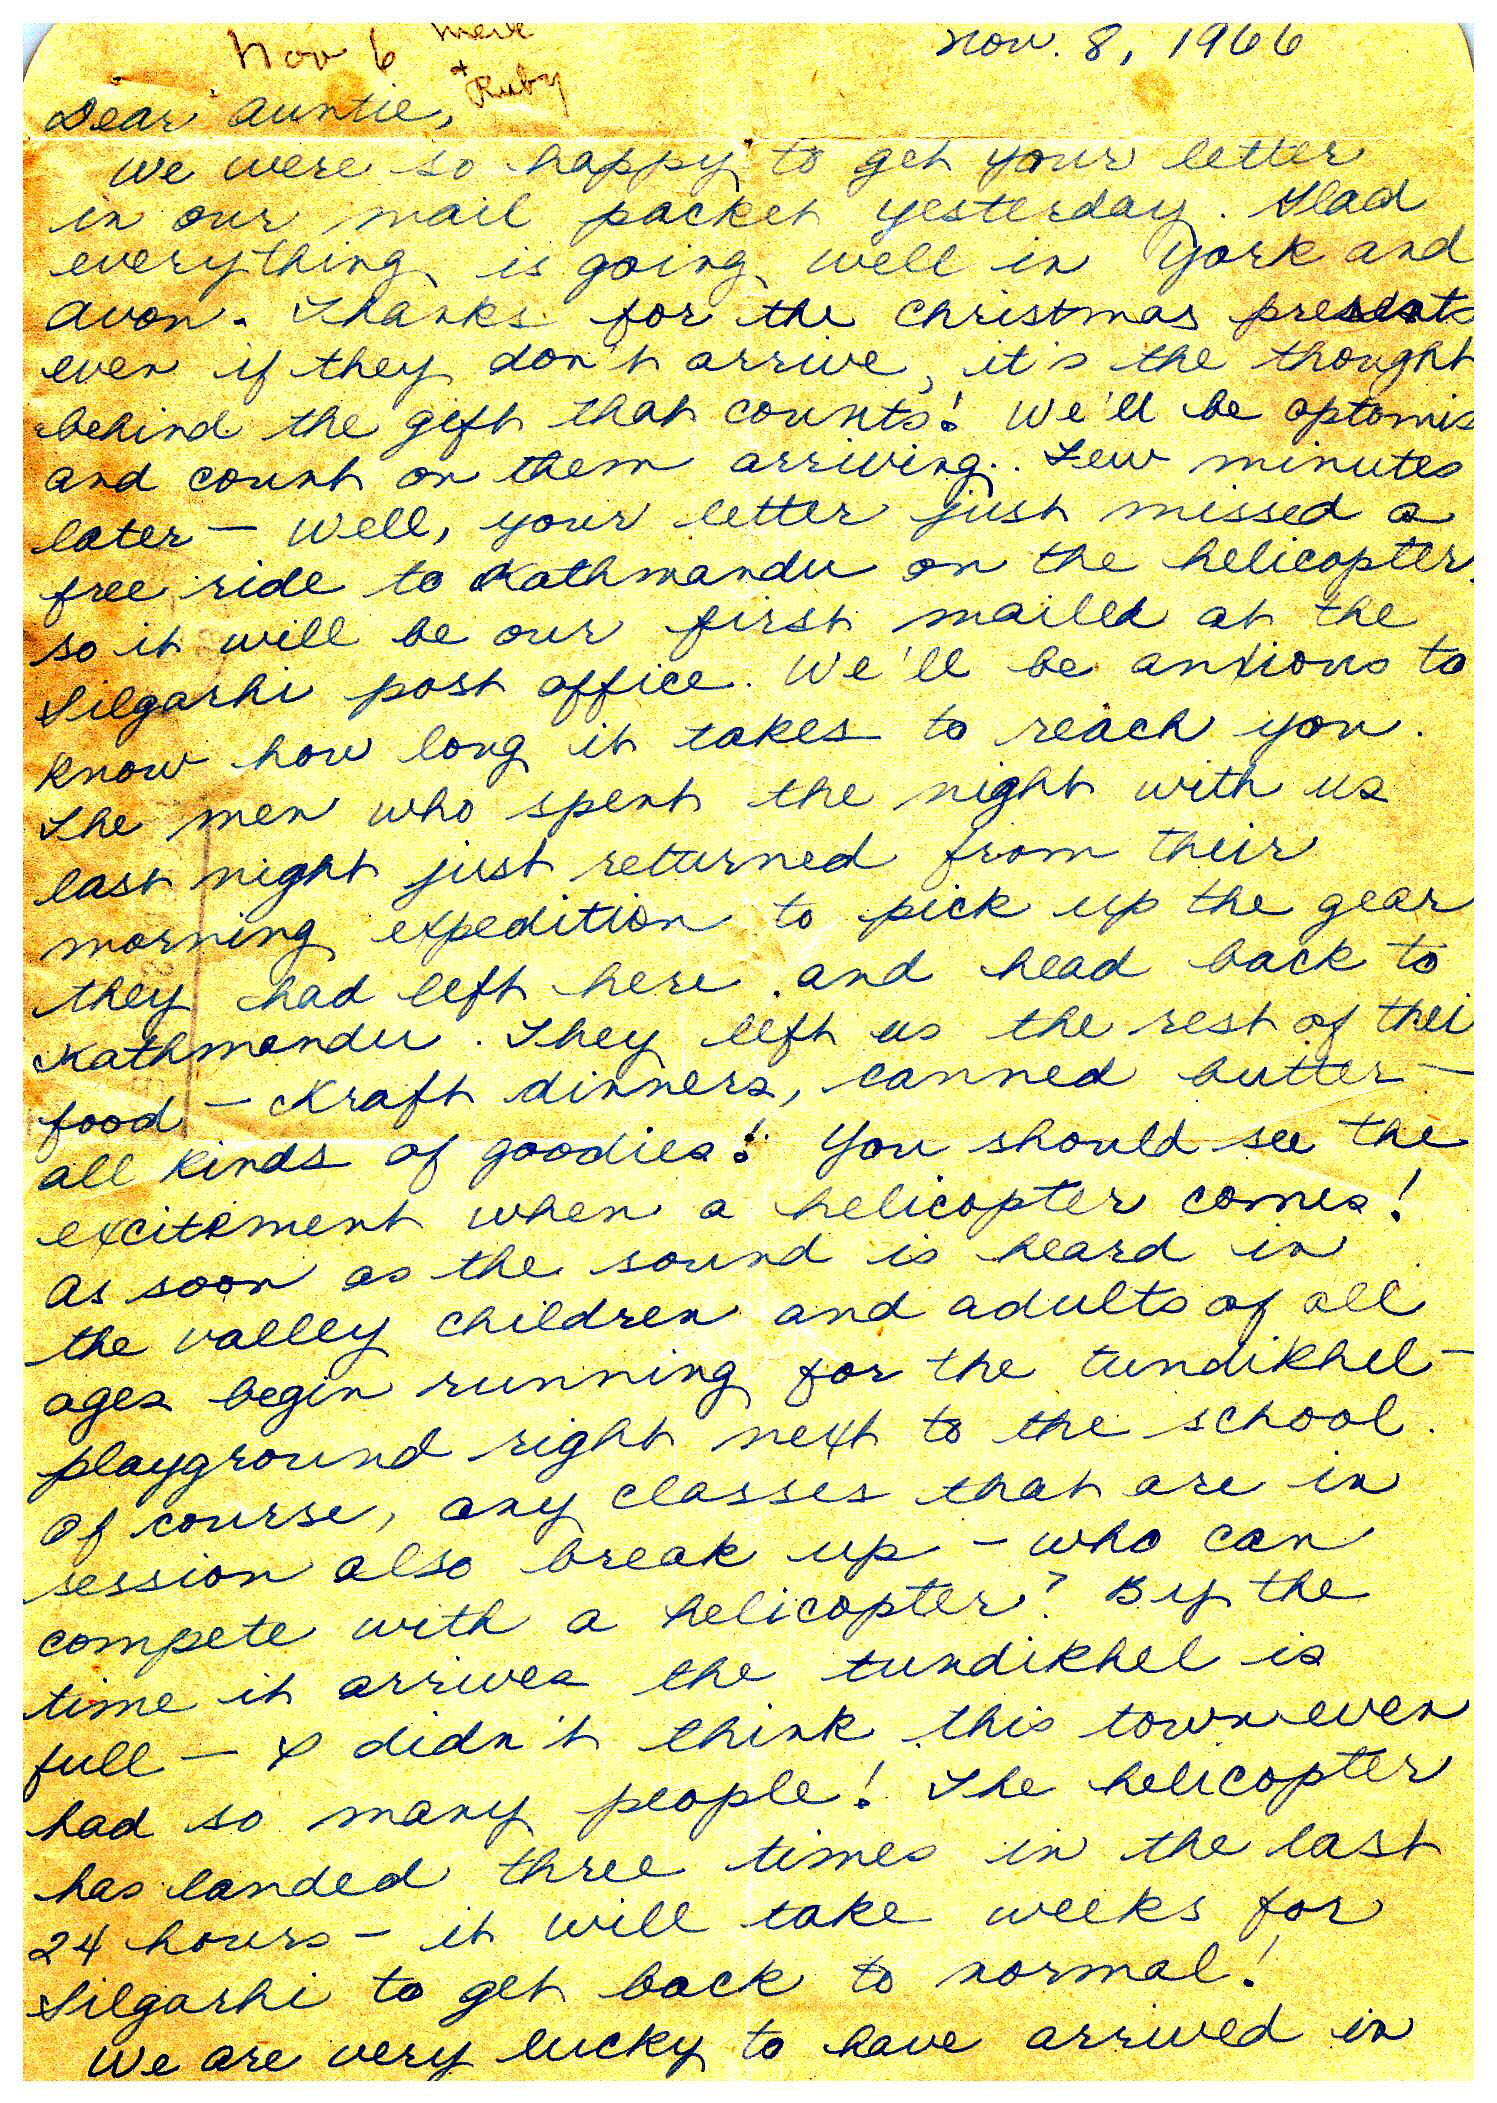 Nov 6 Merv
+ Ruby
Nov. 8, 1966
Dear Auntie,
We were so happy to get your letter
in our mail packet yesterday. Glad
everything is going well in York and
Avon. Thanks for the Christmas presents
even if they don't arrive, it's the thought
behind the gift that counts! We'll be optomis
and count on them arriving.. Few minutes
later — Well, your letter just missed a
free ride to Kathmandu on the helicopter
so it will be our first mailed at the
Silgarhi post office. We'll be anxious to
know how long it takes to reach you.
The men who spent the night with us
last night just returned from their
morning expedition to pick up the gear
they had left here and head back to
Kathmandu. They left us the rest of thei
food — Kraft dinners, canned butter —
all kinds of goodies! You should see the
excitement when a helicopter comes!
As soon as the sound is heard in
the valley children and adults of all
ages begin running for the tundikhel —
playground right next to the school.
Of course, any classes that are in
session also break up — who can
compete with a helicopter? By the
time it arrives the tundikhel is
full — I didn't think this town even
had so many people! The helicopter
has landed three times in the last
24 hours — it will take weeks for
Silgarhi to get back to normal!
We are very lucky to have arrived in